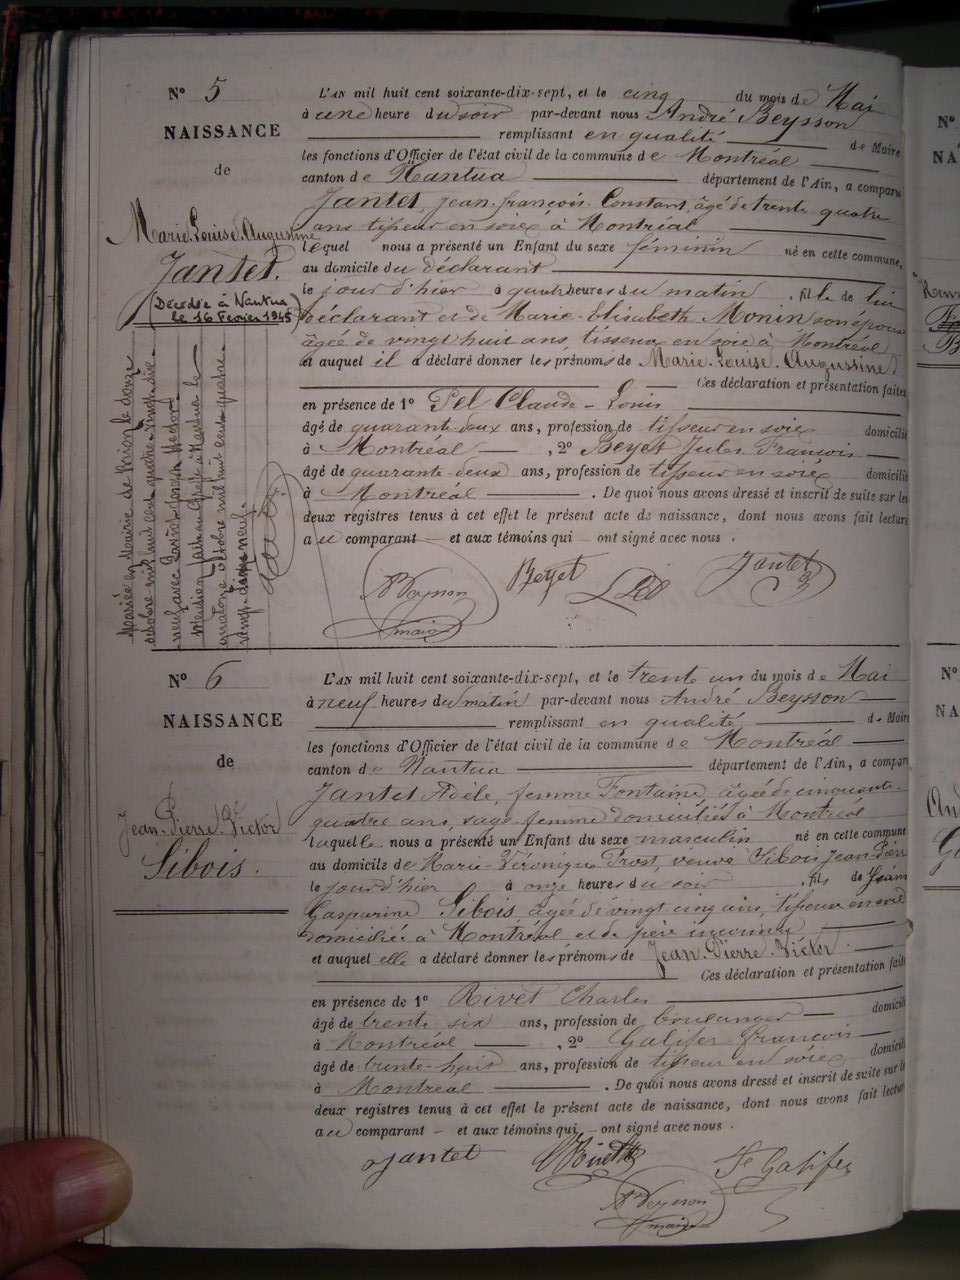 N° 5
NAISSANCE
de
Marie Louise Augustine
Jantet.
(Décédée à Nantua
le 16 Février 1945)
Mariée en Mairie de le douze
octobre mil huit cent quatre-vingt-dix-
neuf avec Joseph Hector
Mention faite au Greffe à Nantua le
quatorze octobre mil huit cent quatre
vingt-dix-neuf.
L'AN mil huit cent soixante-dix-sept, et le cinq du mois de Mai
à une heure du soir par-devant nous André Beysson
remplissant en qualité de Maire
les fonctions d'Officier de l'état civil de la commune de Montréal
canton de Nantua département de l'Ain, a comparu
Jantet, jean-françois Constant, âgé de trente-quatre
ans tisseur en soie à Montréal
lequel nous a présenté un Enfant du sexe féminin né en cette commune,
au domicile du déclarant
le jour d'hier à quatre heures du matin, fille de lui
déclarant et de Marie-Elisabeth Monin son épouse
âgée de vingt huit ans, tisseuse en soie à Montréal
et auquel il a déclaré donner les prénoms de Marie-Louise-Augustine
Ces déclaration et présentation faites
en présence de 1° Pel Claude-Louis
âgé de quarante-deux ans, profession de tisseur en soie domicilié
à Montréal, 2° Beyet Jules François
âgé de quarante-deux ans, profession de tisseur en soie domicilié
à Montréal. De quoi nous avons dressé et inscrit de suite sur les
deux registres tenus à cet effet le présent acte de naissance, dont nous avons fait lecture
au comparant et aux témoins qui ont signé avec nous.
A Beysson Beyet Pel Jantet
maire
N° 6
NAISSANCE
de
Jean-Pierre Victor
Sibois.
L'AN mil huit cent soixante-dix-sept, et le trente un du mois de Mai
à neuf heures du matin par-devant nous André Beysson
remplissant en qualité de Maire
les fonctions d'Officier de l'état civil de la commune de Montréal
canton de Nantua département de l'Ain, a comparu
Jantet Adèle, femme Fontaine, âgée de cinquante-
quatre ans, sage-femme domiciliée à Montréal
laquelle nous a présenté un Enfant du sexe masculin né en cette commune
au domicile de Marie-Véronique Prost, veuve Sibois Jean-Pierre
le jour d'hier à onze heures du soir, fils de
Gasparine Sibois, âgée de vingt cinq ans, tisseuse en soie
domiciliée à Montréal et de père inconnu
et auquel elle a déclaré donner les prénoms de Jean-Pierre-Victor
Ces déclaration et présentation faites
en présence de 1° Rivet Charles
âgé de trente six ans, profession de boulanger domicilié
à Montréal, 2° Galifer François
âgé de trente-huit ans, profession de tisseur en soie domicilié
à Montréal. De quoi nous avons dressé et inscrit de suite sur les
deux registres tenus à cet effet le présent acte de naissance, dont nous avons fait lecture
au comparant et aux témoins qui ont signé avec nous.
Jantet Rivet Fs Galifer
A Beysson
maire